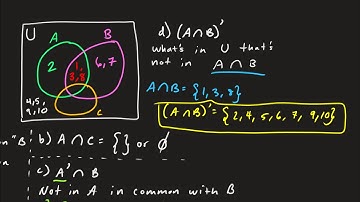 U
A
B
2
1,
3,8
6,7
4,5,
9,10
C
d) (A∩B)'
what's in U that's
not in A∩B
A∩B = {1,3,8}
(A∩B)' = {2,4,5,6,7,9,10}
"B'
b) A∩C = { } or ∅
c) A'∩B
Not in A in common with B